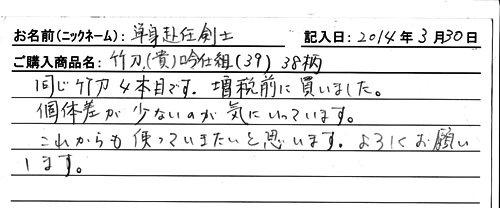 お名前(ニックネーム): 単身赴任剣士 記入日: 2014年3月30日
ご購入商品名: 竹刀,(貴)吟仕組(39) 38柄
同じ竹刀4本目です。増税前に買いました。
個体差が少ないのが気にいっています。
これからも使っていきたいと思います。よろしくお願い
します。